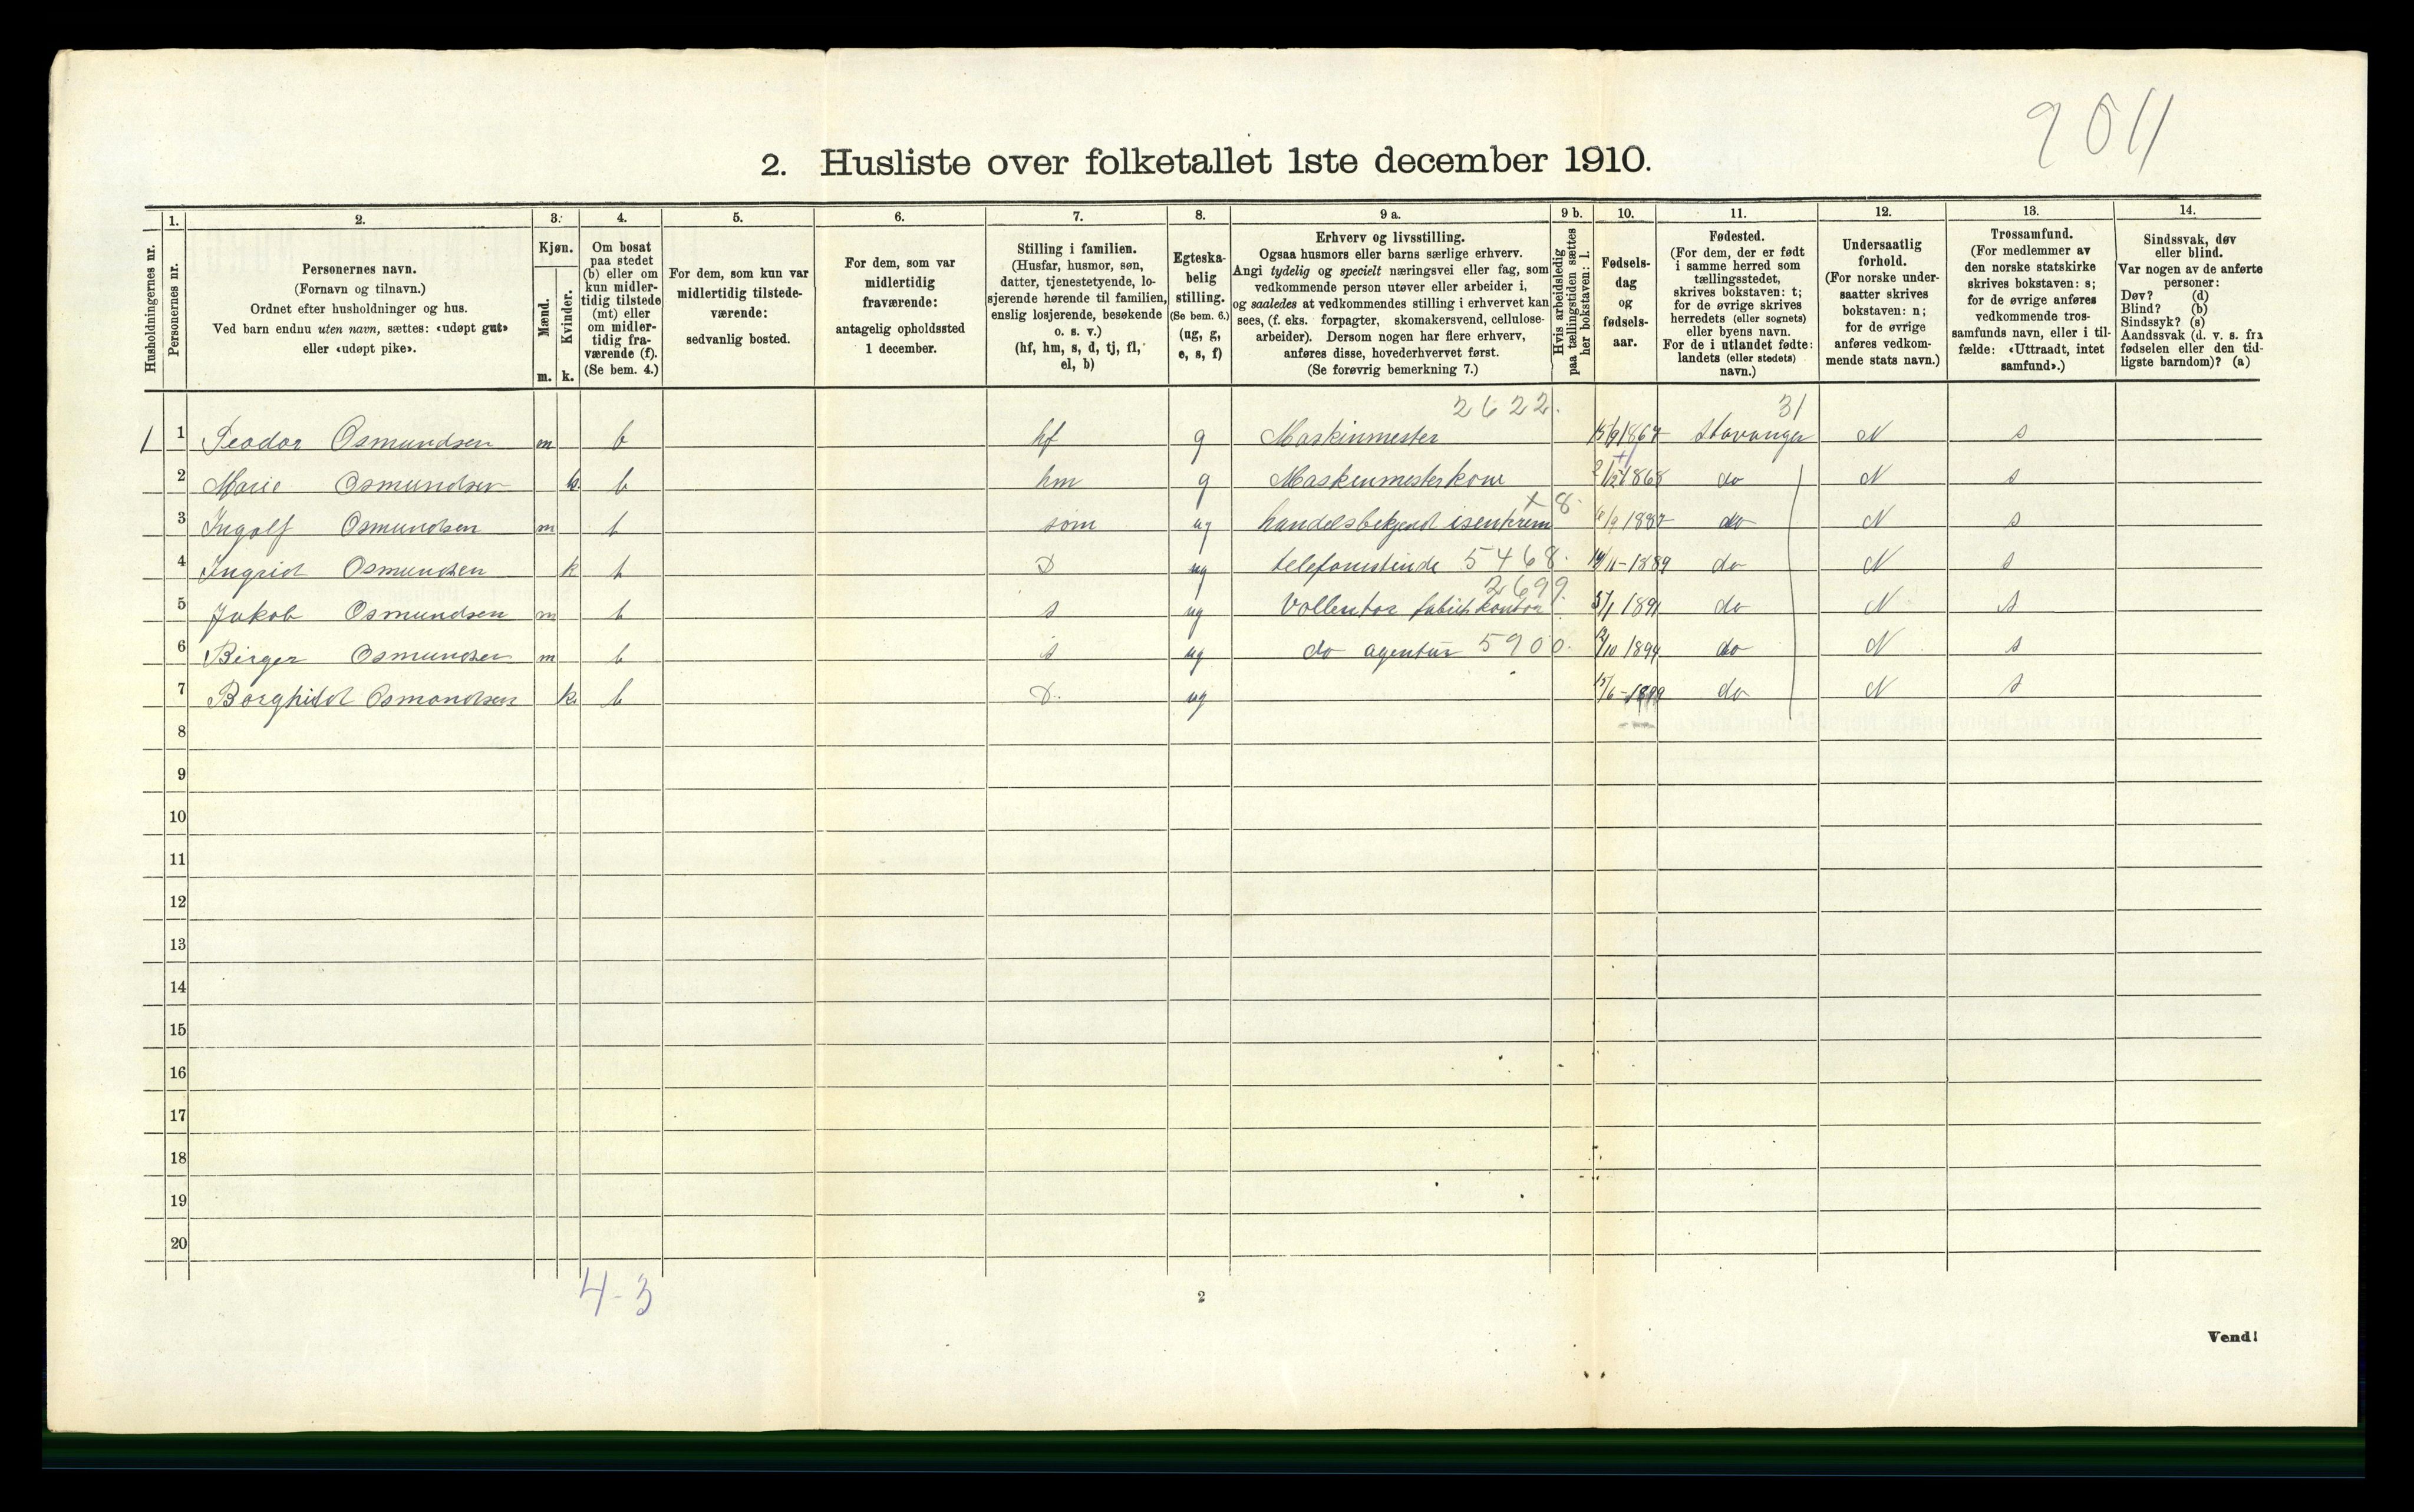 9 0 11
2. Husliste over folketallet 1ste december 1910.
Husholdningernes nr.
1. Personernes nr.
2. Personernes navn. (Fornavn og tilnavn.) Ordnet efter husholdninger og hus. Ved barn endnu uten navn, sættes: «udøpt gut» eller «udøpt pike».
3. Kjøn. Mænd. m. Kvinder. k.
4. Om bosat paa stedet (b) eller om kun midlertidig tilstede (mt) eller om midlertidig fraværende (f). (Se bem. 4.)
5. For dem, som kun var midlertidig tilstedeværende: sedvanlig bosted.
6. For dem, som var midlertidig fraværende: antagelig opholdssted 1 december.
7. Stilling i familien. (Husfar, husmor, søn, datter, tjenestetyende, losjerende hørende til familien, enslig losjerende, besøkende o. s. v.) (hf, hm, s, d, tj, fl, el, b)
8. Egteskabelig stilling. (Se bem. 6.) (ug, g, e, s, f)
9 a. Erhverv og livsstilling. Ogsaa husmors eller barns særlige erhverv. Angi tydelig og specielt næringsvei eller fag, som vedkommende person utøver eller arbeider i, og saaledes at vedkommendes stilling i erhvervet kan sees, (f. eks. forpagter, skomakersvend, cellulosearbeider). Dersom nogen har flere erhverv, anføres disse, hovederhvervet først. (Se forøvrig bemerkning 7.)
9 b. Hvis arbeidsledig paa tællingstiden sættes her bokstaven: l.
10. Fødselsdag og fødselsaar.
11. Fødested. (For dem, der er født i samme herred som tællingsstedet, skrives bokstaven: t; for de øvrige skrives herredets (eller sognets) eller byens navn. For de i utlandet fødte: landets (eller stedets) navn.)
12. Undersaatlig forhold. (For norske undersaatter skrives bokstaven: n; for de øvrige anføres vedkommende stats navn.)
13. Trossamfund. (For medlemmer av den norske statskirke skrives bokstaven: s; for de øvrige anføres vedkommende trossamfunds navn, eller i tilfælde: «Uttraadt, intet samfund».)
14. Sindssvak, døv eller blind. Var nogen av de anførte personer: Døv? (d) Blind? (b) Sindssyk? (s) Aandssvak (d. v. s. fra fødselen eller den tidligste barndom)? (a)
2622. 31
1 1 Teodor Osmundsen m b hf g Maskinmester 15/9 1867 Stavanger N s
2 Marie Osmundsen k b hm g Maskenmesterkone 1868 do N s
+ 8
3 Ingolf Osmundsen m b søn ug 1887 do N s
4 Ingrid Osmundsen k b D ug telefonistinde 5468. 14/11-1889 do N s
2699.
5 Jakob Osmundsen m b s ug Vollentør fabrikkontor 1891 do N s
6 Birger Osmundsen m b s ug do agentur 5900. 12/10 1894 do N s
7 Borghild Osmondsen k b D. ug 15/6-1899 do N s
8
9
10
11
12
13
14
15
16
17
18
19
20
4-3
2
Vend!